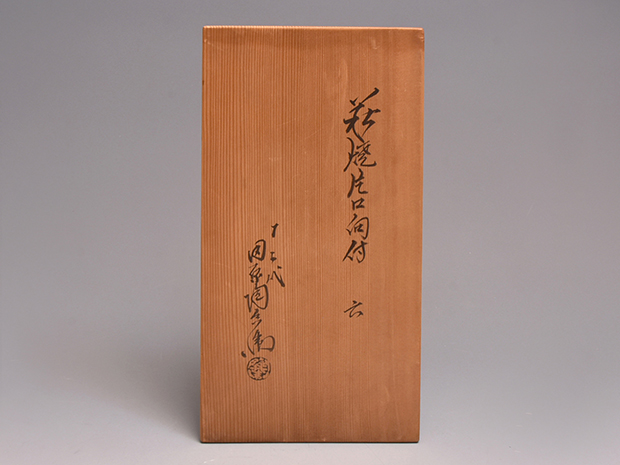 萩焼片口向付 六
十二代
田原陶兵衛